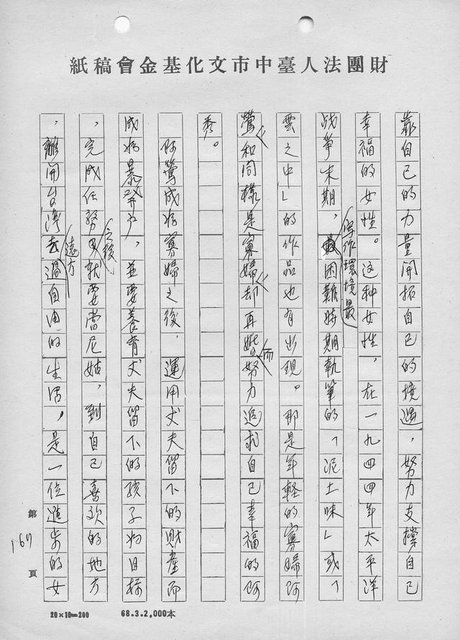 財團法人臺中市文化基金會稿紙
靠自己的力量開拓自己的境遇，努力支撐自己
幸福的女性。這种女性，在一九四四年太平洋
战爭末期，寫作環境最困難時期執筆的「泥土味」或「
雲之中」的作品也有出現。那是年輕的寡婦阿
鶯和同樣是寡婦，却再婚而努力追求自己幸福的阿
秀。
阿鶯成為寡婦之後，運用丈夫留下的財產而
成為暴發戶，並要養育丈夫留下的孩子為目標
，完成任務之後就要當尼姑，到自己喜欢的地方
，離開台灣遠方過自由的生活，是一位進步的女
第167頁
20×10=200
68.3.2,000本